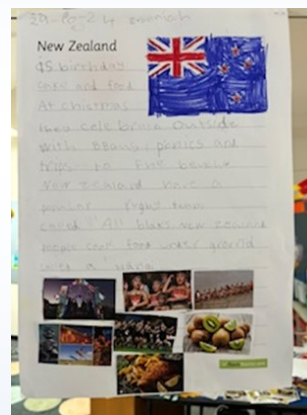 New Zealand
birthday
cake and food
At christmas
they celebrate outside
with BBQ's, picnics and
trips to the beach
New zealand have a
rugby team
called All blacks new zealand
people cook food under ground